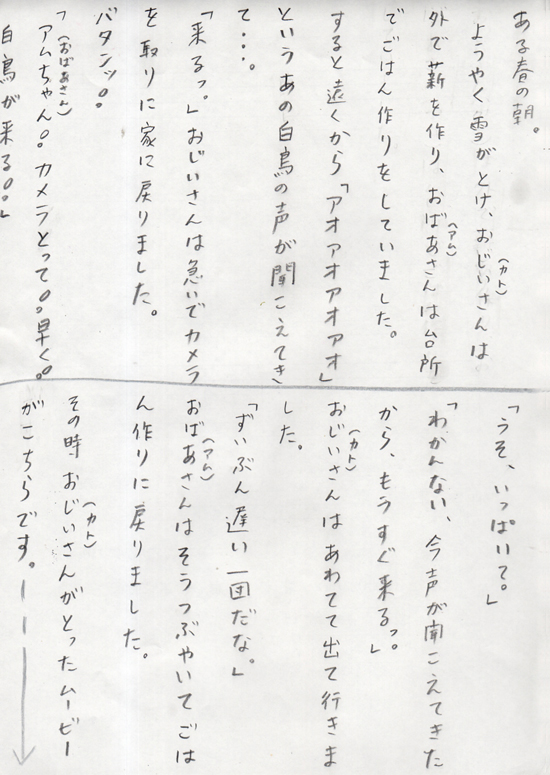 ある春の朝。
ようやく雪がとけ、おじいさん(カト)は
外で薪を作り、おばあさん(アム)は台所
でごはん作りをしていました。
すると遠くから「アオアオアオアオ」
というあの白鳥の声が聞こえてき
て・・・。
「来るっ。」おじいさんは急いでカメラ
を取りに家に戻りました。
バタンッ。
(おばあさん)
「アムちゃん。カメラとって。早く。
白鳥が来る。。」
「うそ、いっぱいて。」
「わかんない、今声が聞こえてきた
から、もうすぐ来るっ。」
おじいさん(カト)はあわてて出て行きま
した。
「ずいぶん遅い一団だな。」
おばあさん(アム)はそうつぶやいてごは
ん作りに戻りました。
その時おじいさん(カト)がとったムービー
がこちらです。